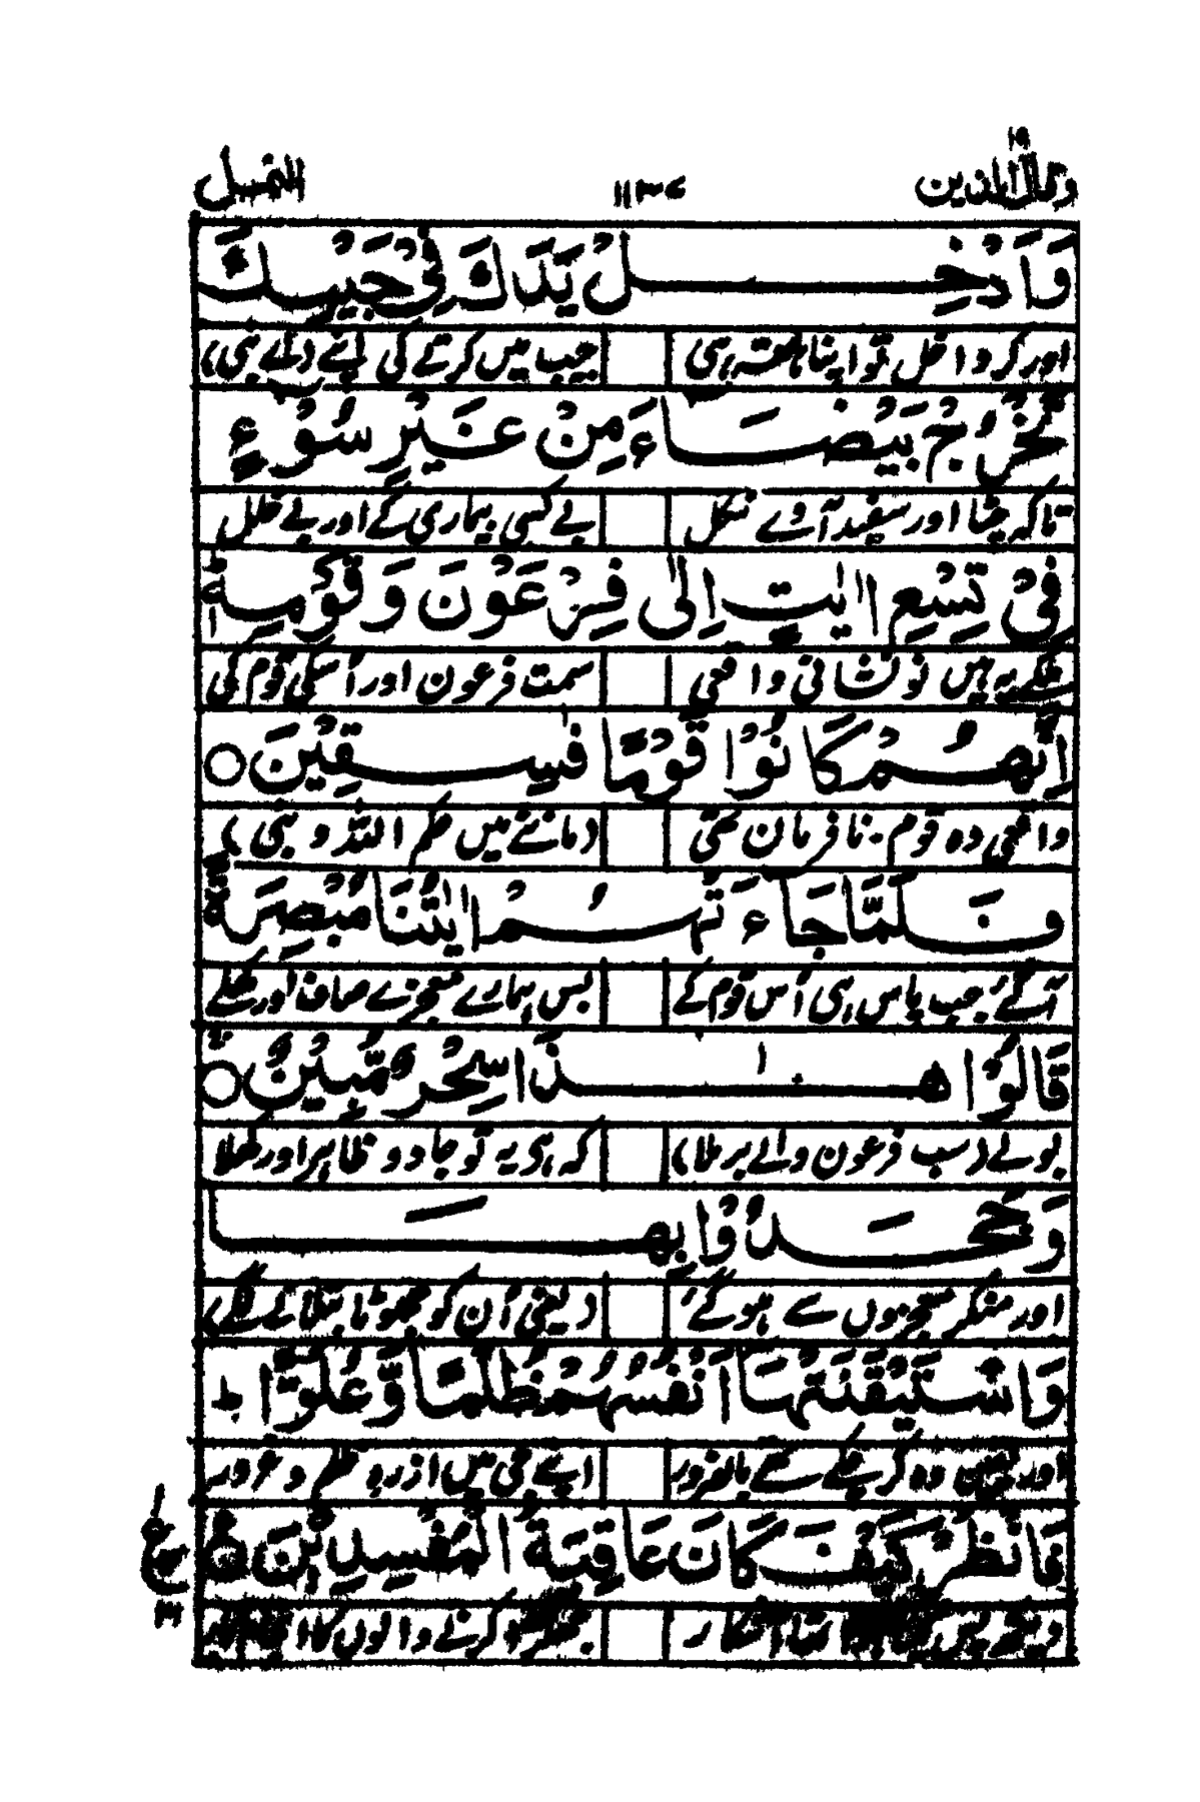 وقال الذین ۱۹
۱۱۳۷
النمل
وَاَدْخِلْ يَدَكَ فِيْ جَيْبِكَ
اور کر داخل تو اپنا ہاتھ ہی جیب میں کرتے کی اپنے (اے نبی)
تَخْرُجْ بَيْضَاءَ مِنْ غَيْرِ سُوْءٍ
تاکہ چٹا اور سفید آوے نکل بے کسی بیماری کے اور بے خلل
فِيْ تِسْعِ اٰيٰتٍ اِلٰى فِرْعَوْنَ وَقَوْمِهٖ ؕ
یہ ہیں نو نشانی واقعی سمت فرعون اور اسکی قوم کی
اِنَّهُمْ كَانُوْا قَوْمًا فٰسِقِيْنَ ○
واقعی وہ قوم نافرمان تھی (ماننے میں حکم اللہ و نبی)
فَلَمَّا جَآءَتْهُمْ اٰيٰتُنَا مُبْصِرَةً
آ گئے جب پاس ہی اُس قوم کے بس ہمارے معجزے صاف اور کھلے
قَالُوْا هٰذَا سِحْرٌ مُّبِيْنٌ ○
بولے (سب فرعون والے برملا) کہ ہی یہ تو جادو ظاہر اور کھلا
وَجَحَدُوْا بِهَا
اور منکر معجزوں سے ہو گئے (یعنی اُن کو جھوٹا بتلانے لگے)
وَاسْتَيْقَنَتْهَا اَنْفُسُهُمْ ظُلْمًا وَّعُلُوًّا ؕ
اور یقین وہ کر چکے تھے بالضرور اپنے جی میں از رہ ظلم و غرور
فَانْظُرْ كَيْفَ كَانَ عَاقِبَةُ الْمُفْسِدِيْنَ
ع
دیکھ بس کرنے والوں کا